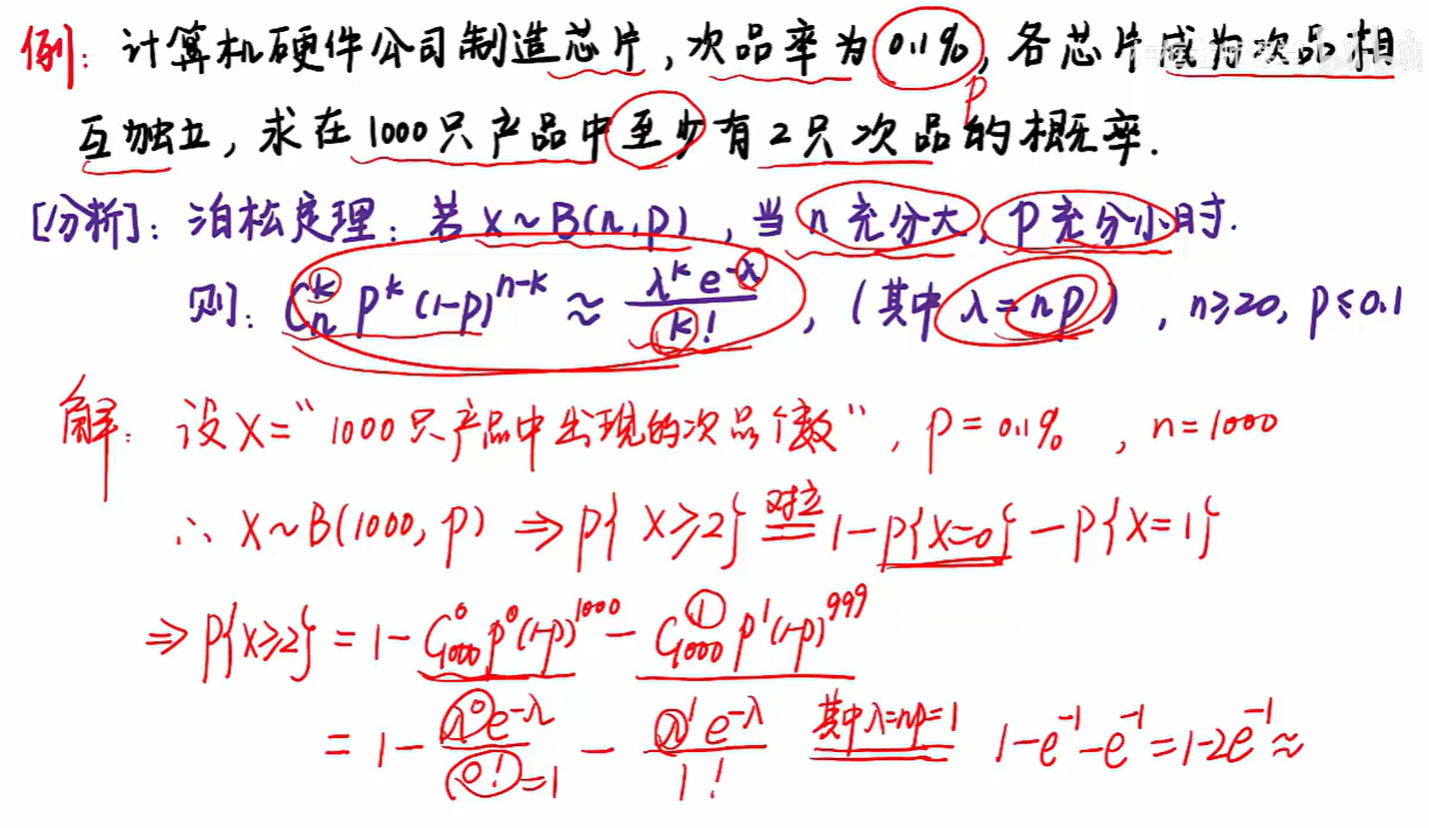 例: 计算机硬件公司制造芯片, 次品率为 0.1%, 各芯片成为次品相
p
互独立, 求在1000只产品中至少有2只次品的概率.
[分析]: 泊松定理: 若 X~B(n,p), 当 n 充分大, p 充分小时.
则: C_n^k p^k (1-p)^{n-k} ≈ \frac{λ^k e^{-λ}}{k!}, (其中 λ=np), n≥20, p≤0.1
解: 设X="1000只产品中出现的次品个数", p=0.1%, n=1000
∴ X~B(1000, p) ⇒ p{X≥2} \overset{对立}{=} 1-p{X=0}-p{X=1}
⇒ p{X≥2} = 1-C_{1000}^0 p^0 (1-p)^{1000} - C_{1000}^1 p^1 (1-p)^{999}
= 1-\frac{λ^0 e^{-λ}}{0!=1} - \frac{λ^1 e^{-λ}}{1!} \overset{其中λ=np=1}{=} 1-e^{-1}-e^{-1}=1-2e^{-1}≈